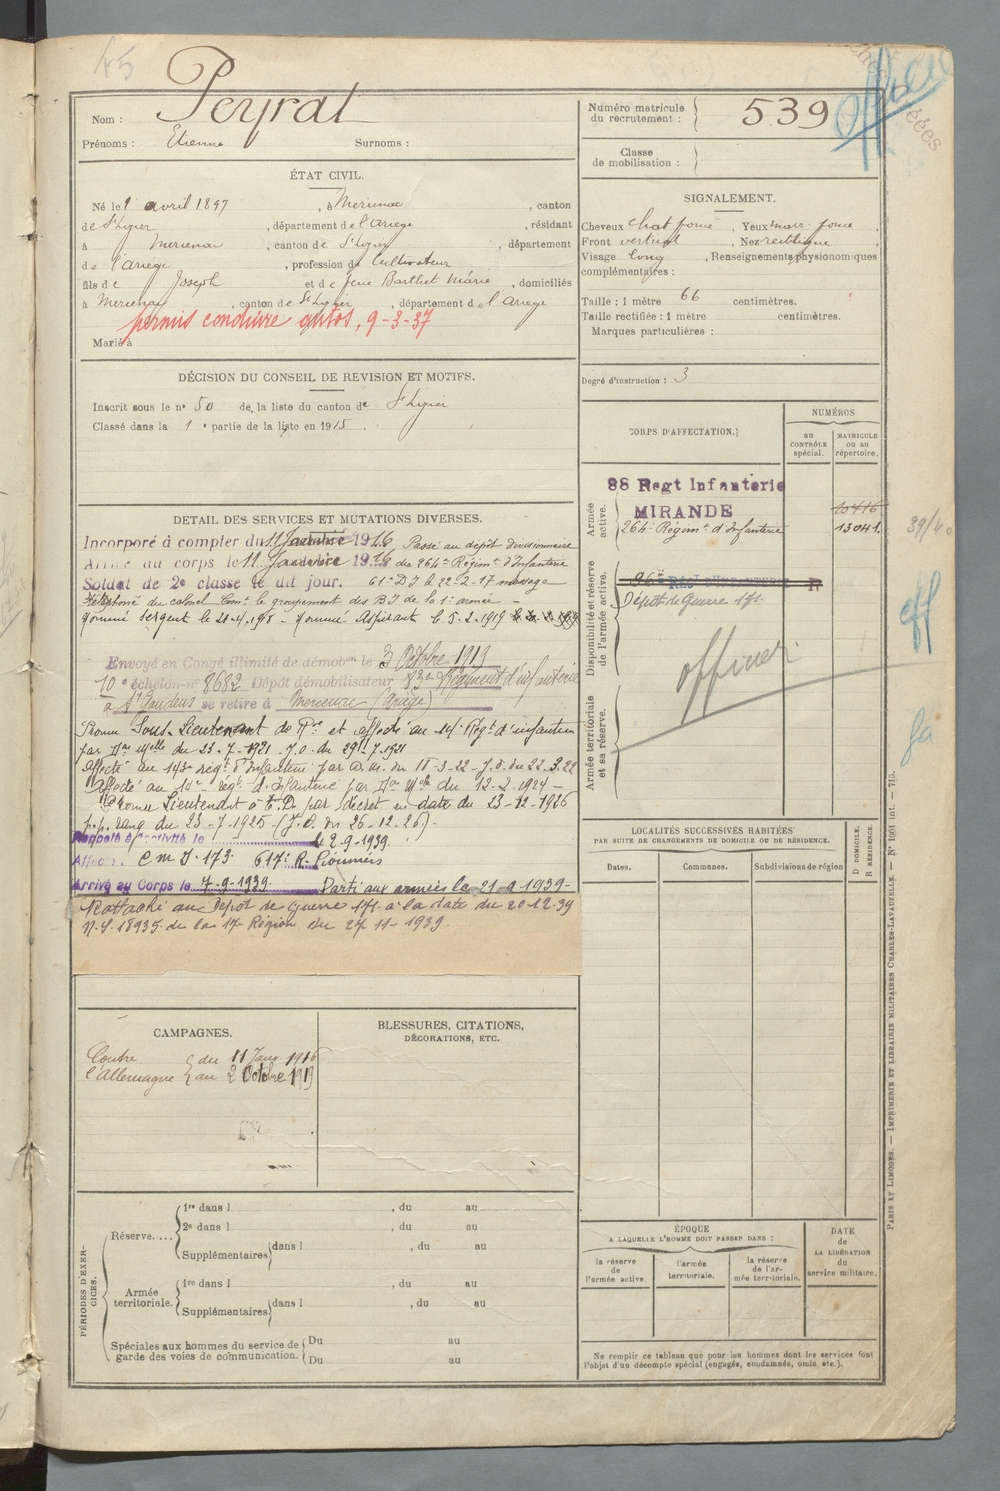 45
Nom : Peyrat
Prénoms : Etienne Surnoms :
ÉTAT CIVIL.
Né le 1 avril 1897, à Mercenac, canton
de St Lizier, département de l'Ariège, résidant
à Mercenac, canton de St Lizier, département
de l'Ariège, profession de Cultivateur
fils de Joseph et de feue Barthet Marie, domiciliés
à Mercenac, canton de St Lizier, département de l'Ariège
permis conduire autos, 9-3-37
Marié à
DÉCISION DU CONSEIL DE REVISION ET MOTIFS.
Inscrit sous le n° 50 de la liste du canton de St Lizier
Classé dans la 1e partie de la liste en 1915.
DETAIL DES SERVICES ET MUTATIONS DIVERSES.
Incorporé à compter du 11 Janvier 1916 Passé au dépôt divisionnaire
Arrivé au corps le 11 Janvier 1916 du 264e Régimt d'Infanterie
Soldat de 2e classe le dit jour. 61e D I le 22-2-17 message
téléphoné du colonel Comt le groupement des BI de la 1e armée -
Nommé Sergent le 21-4-1918 - Nommé Aspirant le 5-2-1919
Envoyé en Congé illimité de démobon le 3 Octobre 1919
10e échelon n° 8682 Dépôt démobilisateur 83e Régiment d'infanterie
à St Gaudens se retire à Mercenac (Ariège)
Promu Sous-Lieutenant de Rve et affecté au 14e Régt d'infanterie
par Don Mlle du 23-7-1921 J.O. du 29-7-1921
Affecté au 143e régt d'Infanterie par D.M. du 18-3-22 - J.O. du 22.3.22
Affecté au 14e régt d'Infanterie par Don Mlle du 12-2-1924 -
Promu Lieutenant à T.D. par décret en date du 23-12-1926
p.p. rang du 23-7-1925 (J.O. du 26-12-26) -
Rappelé à l'activité le 2-9-1939.
Affecté C M I 173. 617e R. Pionniers
Arrivé au Corps le 7-9-1939 Parti aux armées le 21-9-1939-
Rattaché au Dépôt de Guerre 171 à la date du 20-12-39
N.S. 18935 de la 17e Région du 27-11-1939
CAMPAGNES.
Contre l'Allemagne { du 11 Janv 1916
au 2 Octobre 1919
BLESSURES, CITATIONS,
DÉCORATIONS, ETC.
PÉRIODES D'EXERCICES.
Réserve.....
1re dans l , du au
2e dans l , du au
Supplémentaires dans l , du au
Armée territoriale.
1re dans l , du au
Supplémentaires dans l , du au
Spéciales aux hommes du service de garde des voies de communication.
Du au
Du au
Numéro matricule du recrutement : 539
Classe de mobilisation :
SIGNALEMENT.
Cheveux chat foncé, Yeux marr. foncé,
Front vertical, Nez rectiligne,
Visage long, Renseignements physionomiques
complémentaires :
Taille : 1 mètre 66 centimètres.
Taille rectifiée : 1 mètre centimètres.
Marques particulières :
Degré d'instruction : 3
CORPS D'AFFECTATION.
NUMÉROS
AU CONTRÔLE spécial.
MATRICULE OU AU répertoire.
Armée active.
88 Regt Infanterie
MIRANDE
10416
264e Régimt d'Infanterie 13041.
Disponibilité et réserve de l'armée active.
Dépôt de Guerre 171.
officier
Armée territoriale et sa réserve.
LOCALITÉS SUCCESSIVES HABITÉES
PAR SUITE DE CHANGEMENTS DE DOMICILE OU DE RÉSIDENCE.
Dates. Communes. Subdivisions de région
D DOMICILE.
R RÉSIDENCE.
ÉPOQUE
A LAQUELLE L'HOMME DOIT PASSER DANS :
la réserve de l'armée active.
l'armée territoriale.
la réserve de l'armée territoriale.
DATE de LA LIBÉRATION du service militaire.
Ne remplir ce tableau que pour les hommes dont les services font
l'objet d'un décompte spécial (engagés, condamnés, omis, etc.).
39/40
eff
PARIS ET LIMOGES. — IMPRIMERIE ET LIBRAIRIE MILITAIRES CHARLES-LAVAUZELLE. — N° 1001 int. — 715.